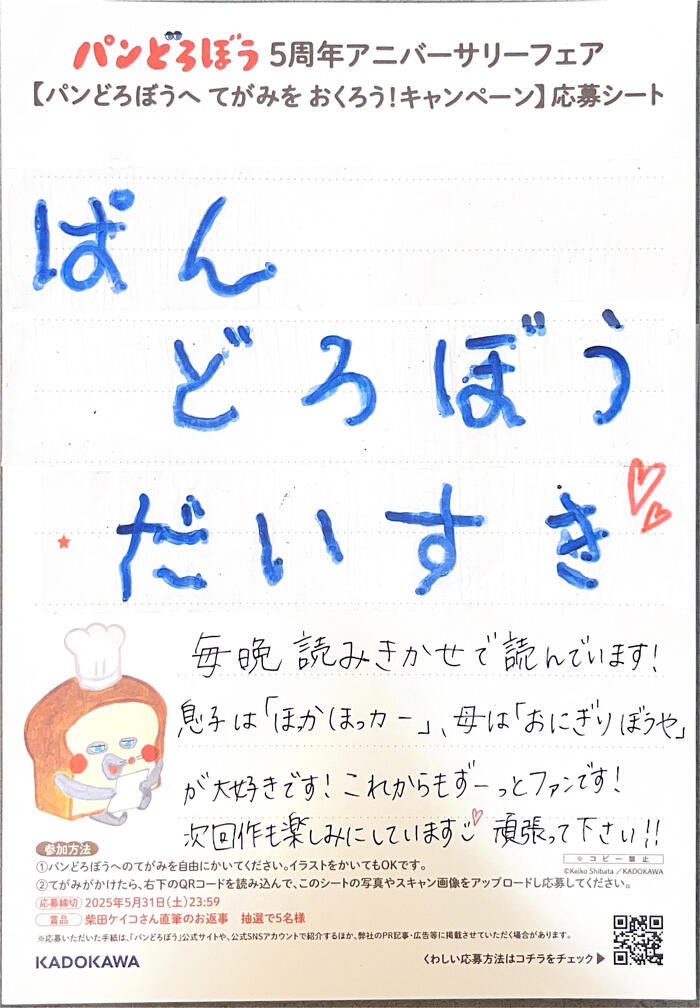 パンどろぼう 5周年アニバーサリーフェア
【パンどろぼうへ てがみを おくろう!キャンペーン】応募シート
ぱん
どろぼう
だいすき
毎晩 読みきかせで読んでいます!
息子は「ほっかほっカー」、母は「おにぎりぼうや」
が大好きです!これからもずーっとファンです!
次回作も楽しみにしています 頑張って下さい!!
参加方法
※コピー禁止
©Keiko Shibata/KADOKAWA
①パンどろぼうへのてがみを自由にかいてください。イラストをかいてもOKです。
②てがみがかけたら、右下のQRコードを読み込んで、このシートの写真やスキャン画像をアップロードし応募してください。
応募締切 2025年5月31日(土)23:59
賞品 柴田ケイコさん直筆のお返事 抽選で5名様
※応募いただいた手紙は、「パンどろぼう」公式サイトや、公式SNSアカウントで紹介するほか、弊社のPR記事・広告等に掲載させていただく場合があります。
KADOKAWA
くわしい応募方法はコチラをチェック▶